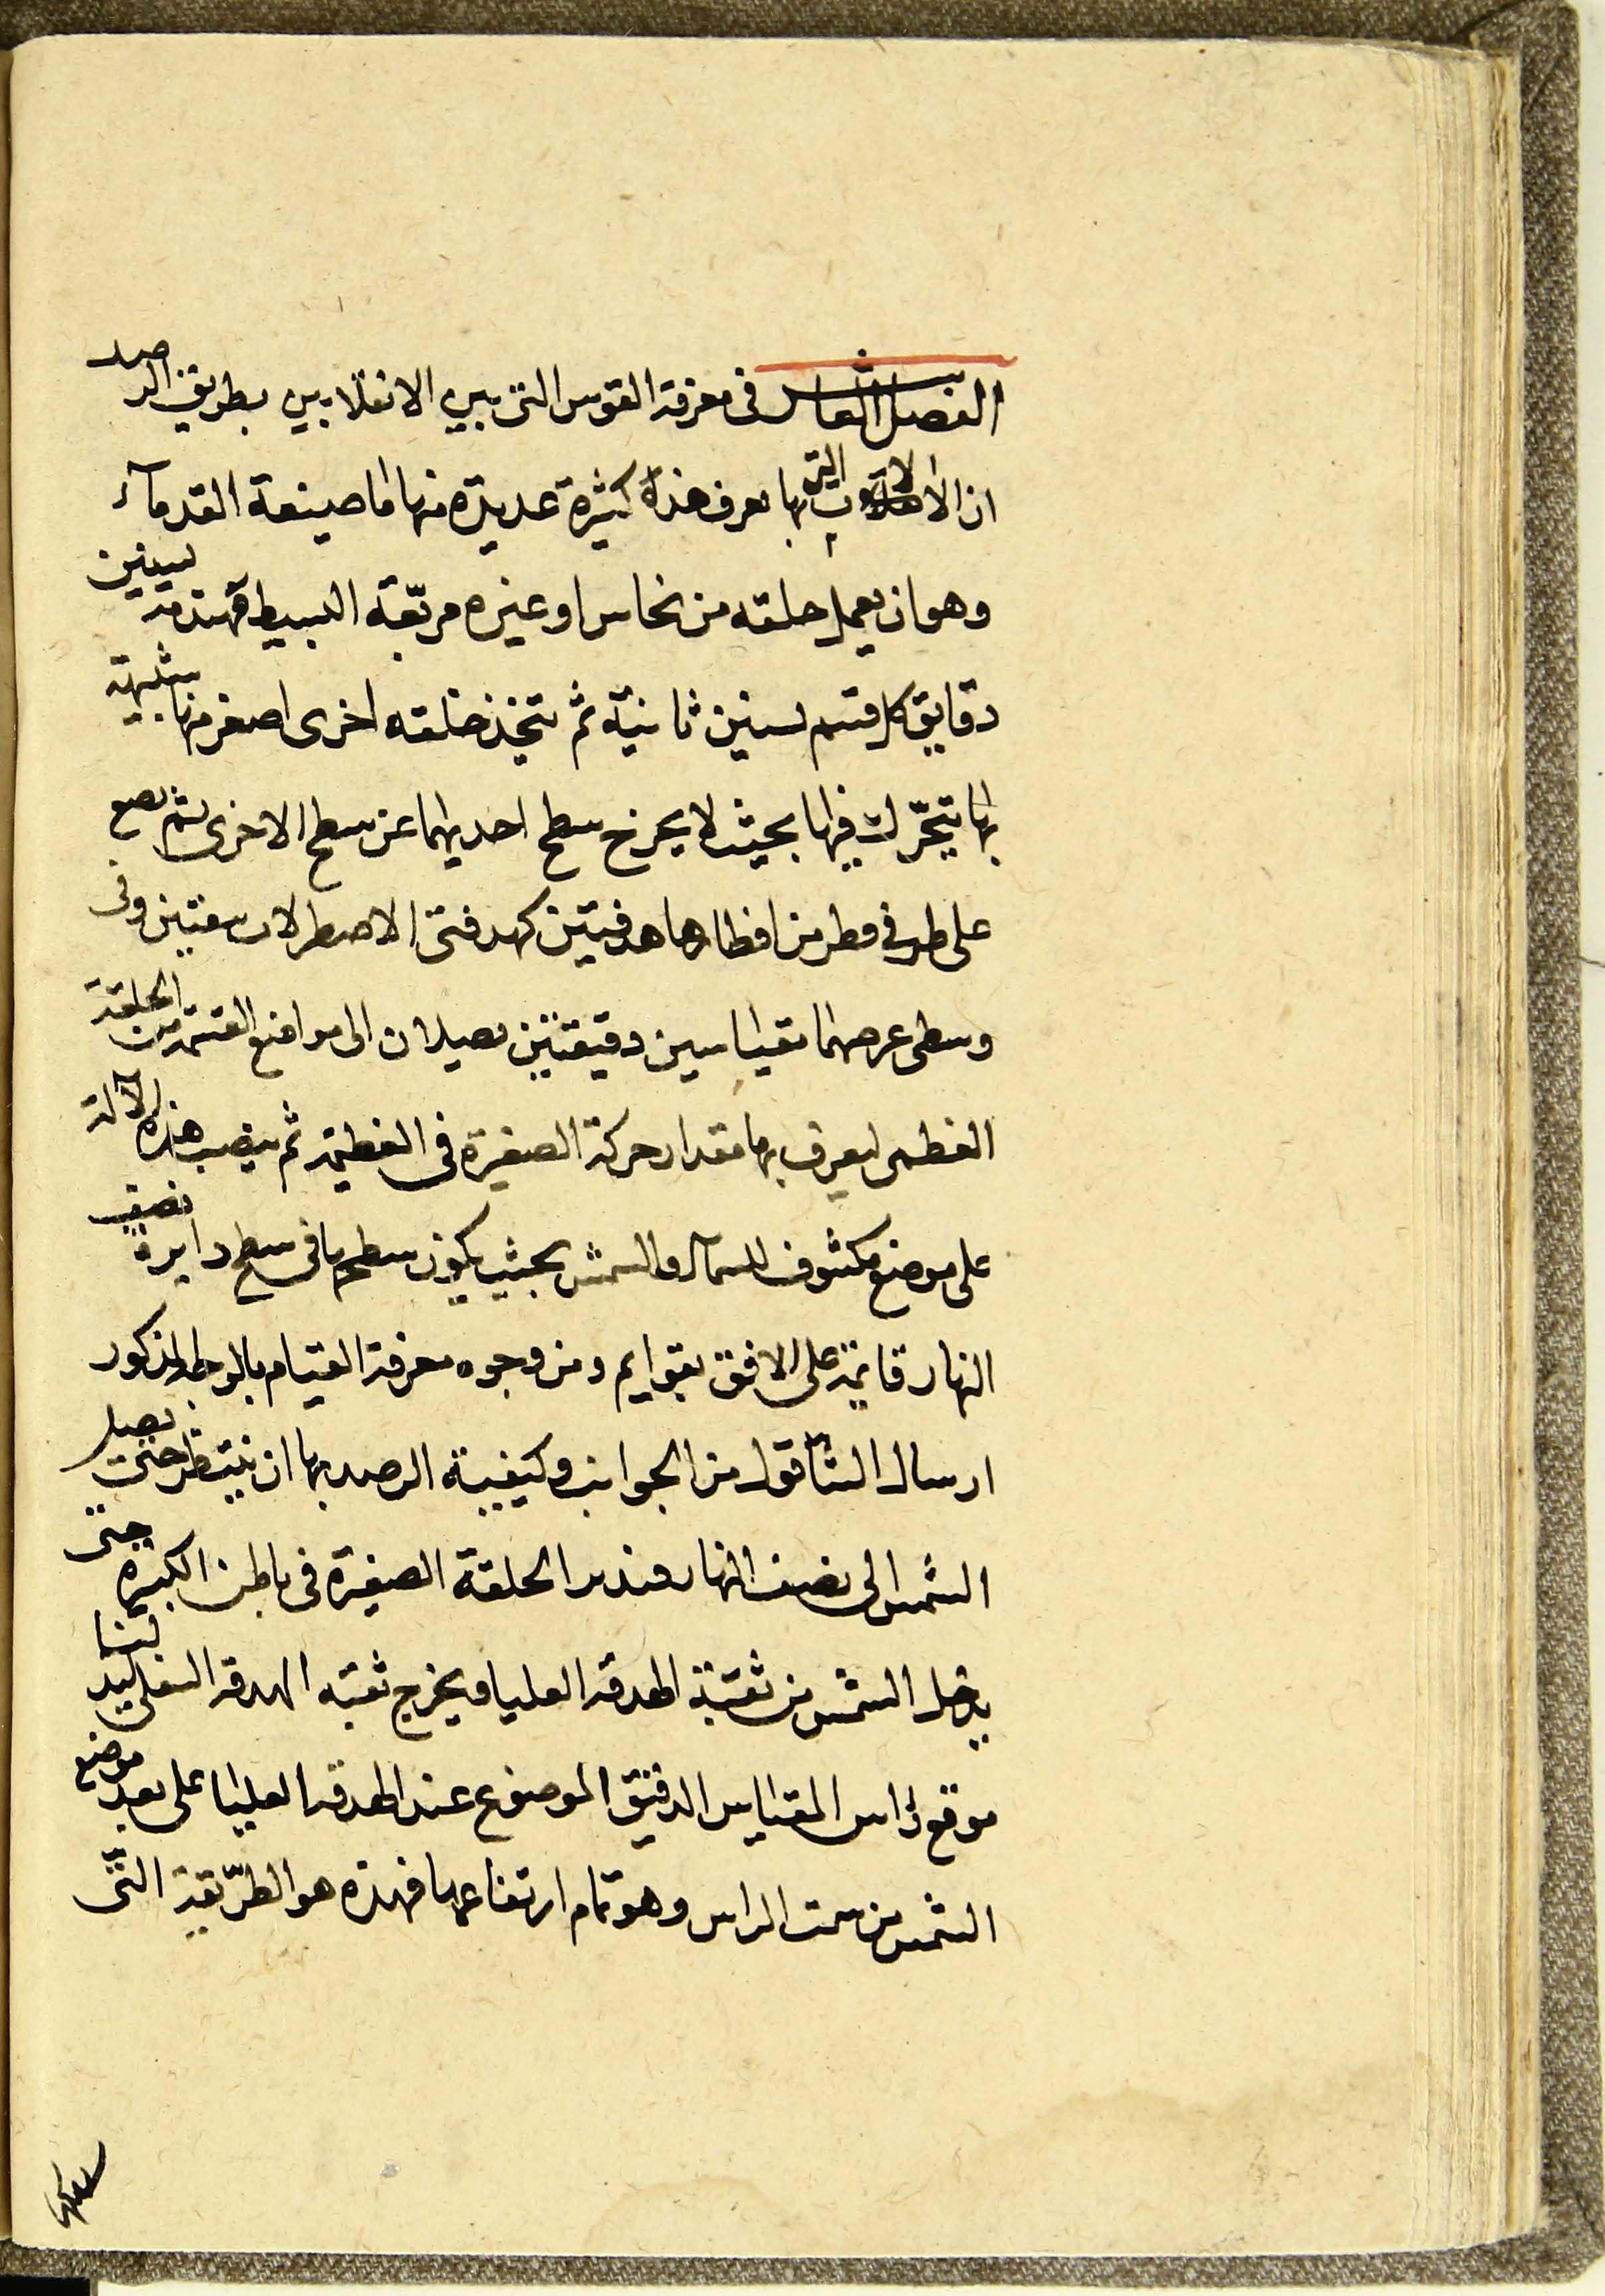 الفصل العاشر فى معرفة القوس التى بين الانقلابين بطريق الرصد
ان الالات التى بها يعرف هذه كثيرة عديدة منها ما صنعه القدمآء
وهو ان يعمل حلقه من نحاس او غيره مربّعة البسيط
دقايق كل قسم لستين ثانية ثم تتخذ حلقه اخرى اصغر منها شبيهة
بها يتحرّك فيها بحيث لا يخرج سطح احديهما عن سطح الاخرى ثم يضع
على طرفى قطر من اقطارها هدفتين كهدفتى الاصطرلاب بثقبتين وفى
وسطى عرضهما مقياسين دقيقتين يصلان الى مواضع القسمة من الحلقة
العظمى ليعرف بهما مقدار حركة الصغيرة فى العظيمة ثم ينصب هذه الآلة
على موضع مكشوف للسمآء والشمس بحيث يكون سطحها فى سطح دايرة نصف
النهار قايمة على الافق بقوايم ومن وجوه معرفة القيام بالوجه المذكور
ارسال الشاقول من الجوانب وكيفية الرصد بها ان ينتظر حتى يصل
الشمس الى نصف النهار فندير الحلقة الصغيرة فى باطن الكبيرة حتى
يدخل الشمس من ثقبة الهدفة العليا ويخرج ثقبه الهدفة السفلى ليدلنا
موقع رأس المقياس الدقيق الموضوع عند الهدفة العليا على بعد موضع
الشمس من سمت الراس وهو تمام ارتفاعها فهذه هو الطرّيقة التّى